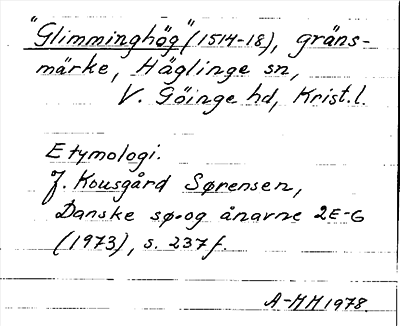 "Glimminghög" (1514-18), gräns-
märke, Häglinge sn,
V. Göinge hd, Krist.l.
Etymologi.
J. Kousgård Sørensen,
Danske sø- og ånavne 2E-G
(1973), s. 237 f.
A-HH 1978.